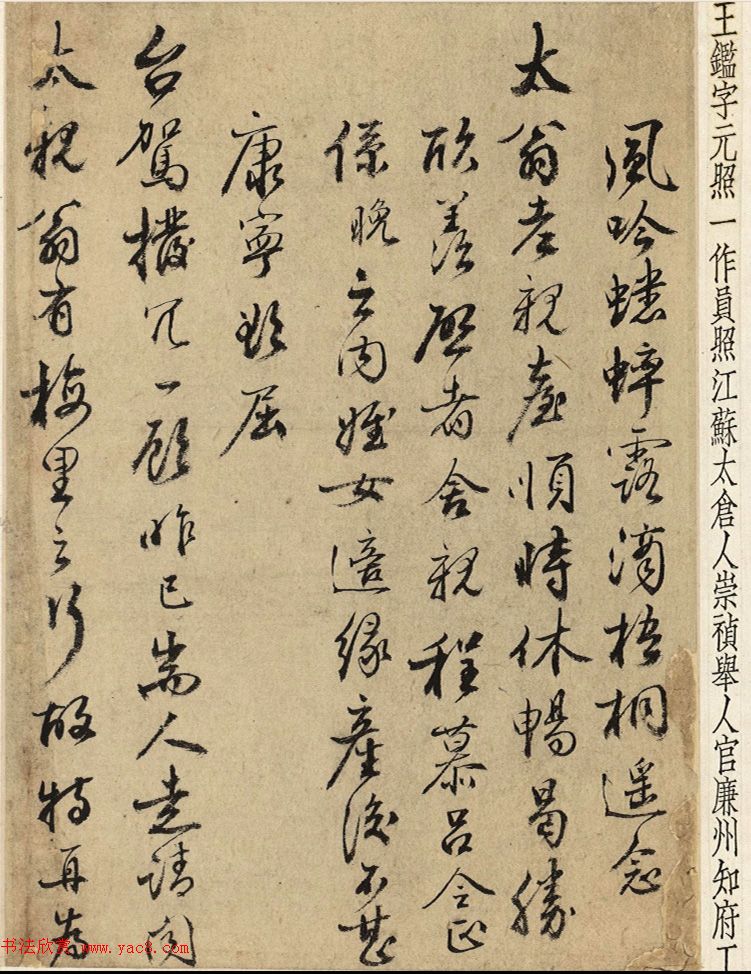 王鑑字元照一作員照江蘇太倉人崇禎舉人官廉州知府工
風吟蟋蟀露滴梧桐遥念
太翁老親臺順時休暢曷勝
欣羨啟者舍親程慕呂令正
係晚之内姪女適緣產後不甚
康寧欲屈
台駕撥冗一顧昨已耑人走請聞
太親翁有梅里之行故特再為
书法欣赏 www.yac8.com